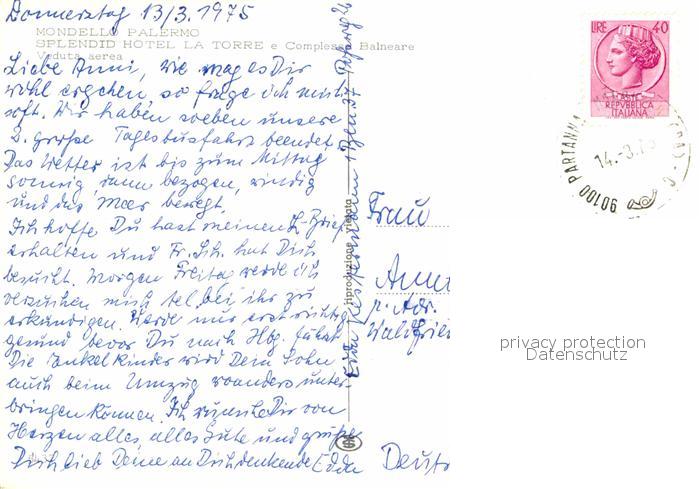 Donnerstag 13/3. 1975
MONDELLO PALERMO
SPLENDID HOTEL LA TORRE e Complesso Balneare
Veduta aerea
Liebe Anni, wie mag es Dir
wohl ergehen, so frage ich mich
oft. Wir haben soeben unsere
2. große Tagesbusfahrt beendet.
Das Wetter ist bis zum Mittag
sonnig, dann bezogen, windig
und das Meer bewegt.
Ich hoffe Du hast meinen L-Brief
erhalten und Fr. Sch. hat Dich
besucht. Morgen Freitag werde ich
versuchen mich tel. bei ihr zu
erkundigen. Werde nur erst richtig
gesund bevor Du nach Hbg. fährst
Die Enkelkinder wird Dein Sohn
auch beim Umzug woanders unter-
bringen können. Ich wünsche Dir von
Herzen alles, alles Gute und grüße
Dich lieb Deine an Dich denkende Edda
riproduzione vietata
Frau
Anni
p. Adr.
Deuts
LIRE 40
REPVBBLICA
ITALIANA
90100 PARTANNA
14.-3.75
privacy protection
Datenschutz